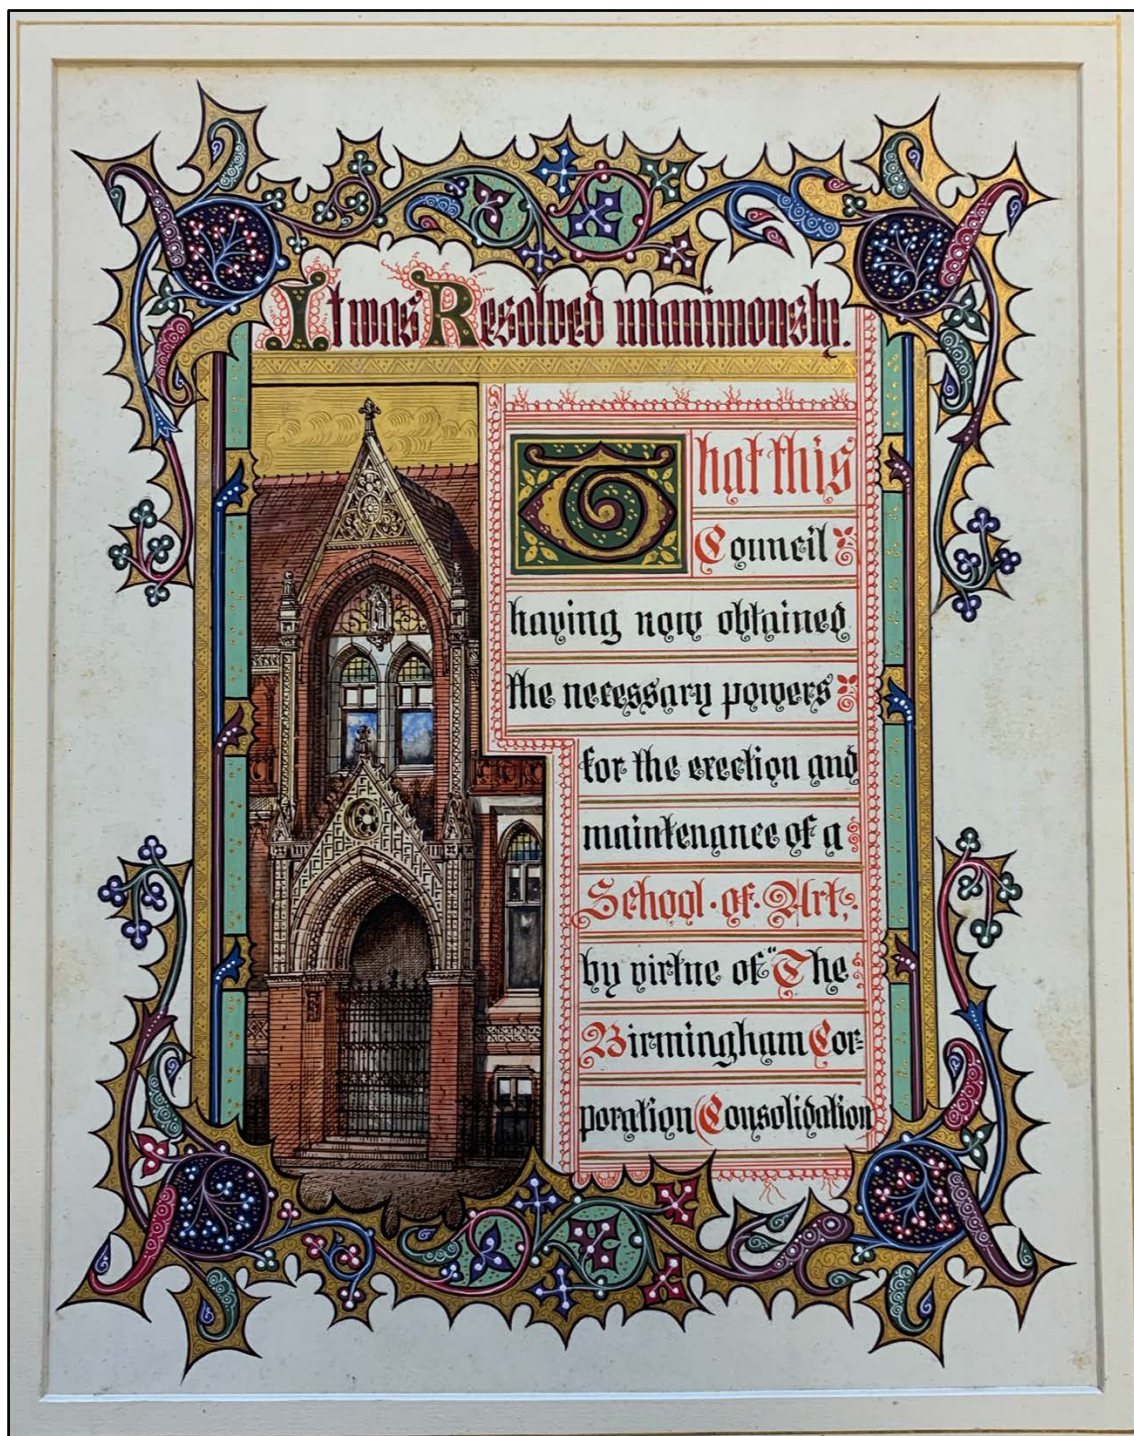 It was Resolved unanimously.
That this
Council
having now obtained
the necessary powers
for the erection and
maintenance of a
School · of · Art,
by virtue of "The
Birmingham Cor-
poration Consolidation